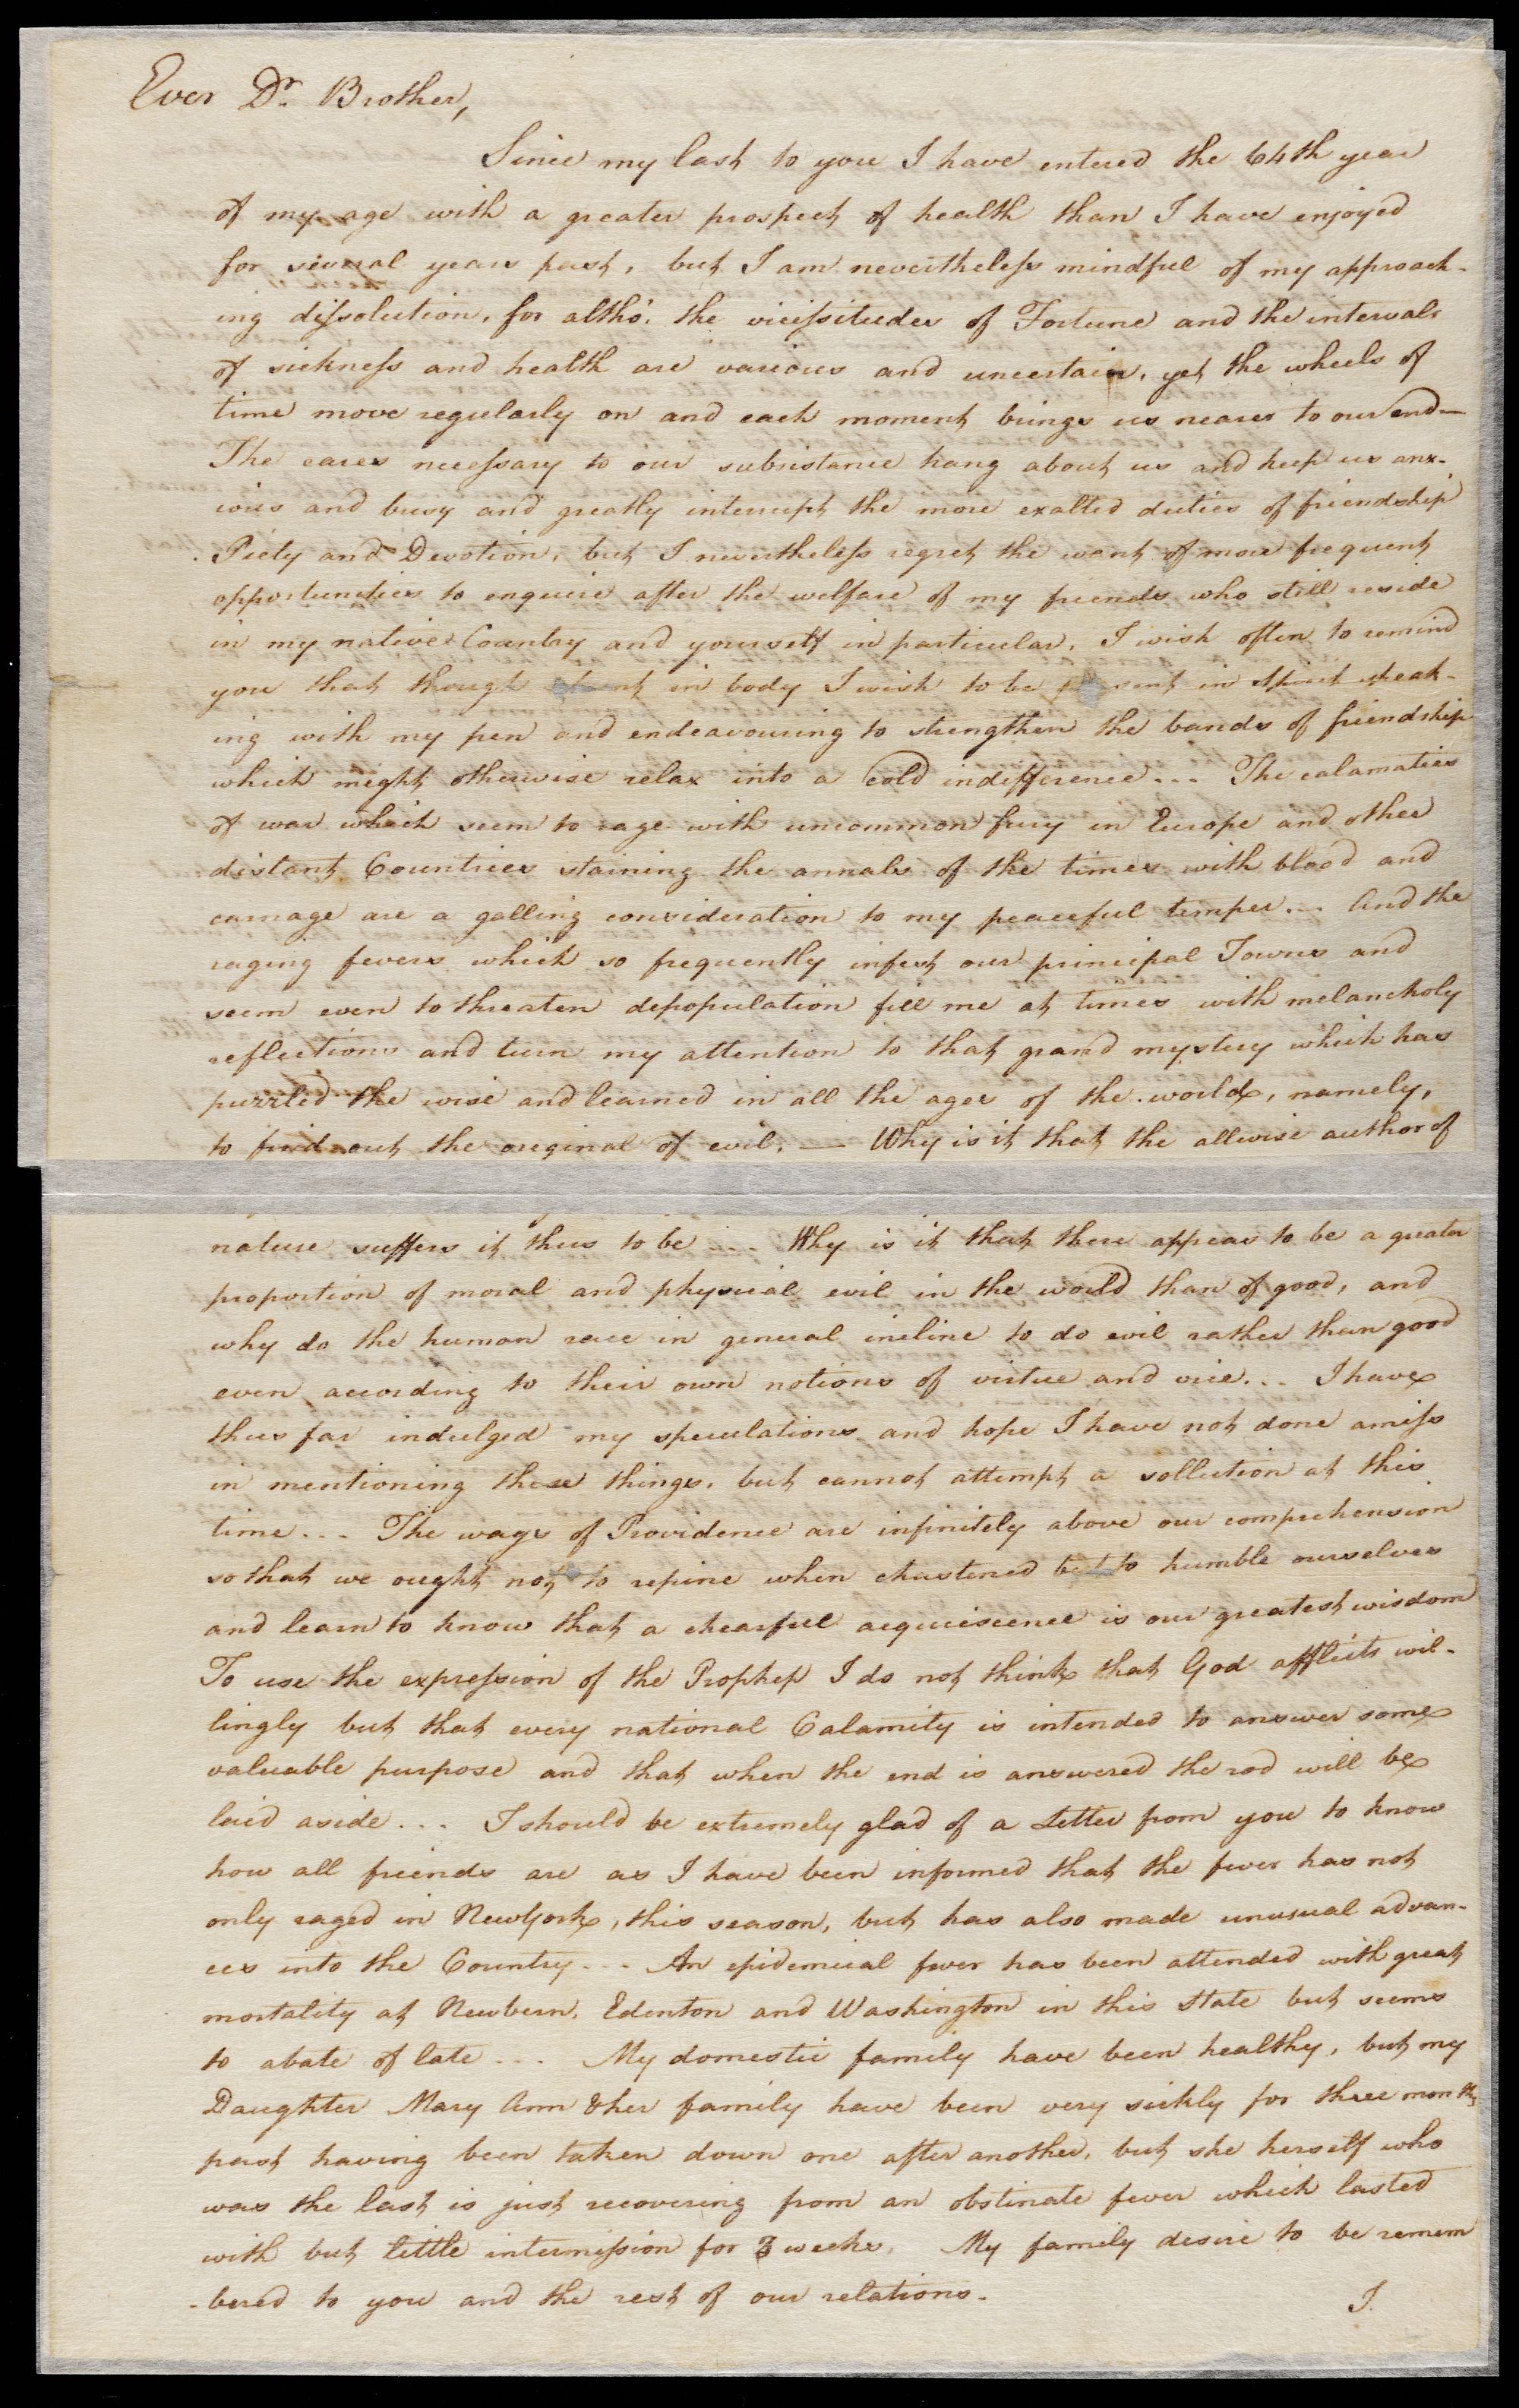 Ever Dr. Brother,
Since my last to you I have entered the 64th year
of my age with a greater prospect of health than I have enjoyed
for several years past, but I am nevertheless mindful of my approach-
ing dissolution, for altho'. the vicissitudes of Fortune and the intervals
of sickness and health are various and uncertain, yet the wheels of
time move regularly on and each moment brings us nearer to our end—
The cares necessary to our subsistance hang about us and keep us anx-
ious and busy and greatly interrupt the more exalted duties of friendship
Piety and Devotion, but I nevertheless regret the want of more frequent
opportunities to enquire after the welfare of my friends who still reside
in my native Country and yourself in particular. I wish often to remind
you that though absent in body I wish to be present in Spirit speak-
ing with my pen and endeavouring to strengthen the bands of friendship
which might otherwise relax into a cold indifference... The calamaties
of war which seem to rage with uncommon fury in Europe and other
distant Countries staining the annals of the times with blood and
carnage are a galling consideration to my peaceful temper... And the
raging fevers which so frequently infest our principal Towns and
seem even to threaten depopulation fill me at times with melancholy
reflections and turn my attention to that grand mystery which has
puzzled the wise and learned in all the ages of the world, namely,
to find out the original of evil. — Why is it that the allwise author of
nature suffers it thus to be ... Why is it that there appear to be a greater
proportion of moral and physical evil in the world than of good, and
why do the human race in general incline to do evil rather than good
even according to their own notions of virtue and vice... I have
thus far indulged my speculations and hope I have not done amiss
in mentioning these things, but cannot attempt a sollution at this
time... The ways of Providence are infinitely above our comprehension
so that we ought not to repine when chastened but to humble ourselves
and learn to know that a chearful acquiescence is our greatest wisdom
To use the expression of the Prophet I do not think that God afflicts wil-
lingly but that every national Calamity is intended to answer some
valuable purpose and that when the end is answered the rod will be
laid aside... I should be extremely glad of a Letter from you to know
how all friends are as I have been informed that the fever has not
only raged in NewYork, this season, but has also made unusual advan-
ces into the Country... An epidemical fever has been attended with great
mortality at Newbern, Edenton and Washington in this State but seems
to abate of late... My domestic family have been healthy, but my
Daughter Mary Ann & her family have been very sickly for three months
past having been taken down one after another, but she herself who
was the last is just recovering from an obstinate fever which lasted
with but little intermission for 3 weeks. My family desire to be remem
-bered to you and the rest of our relations.
I.